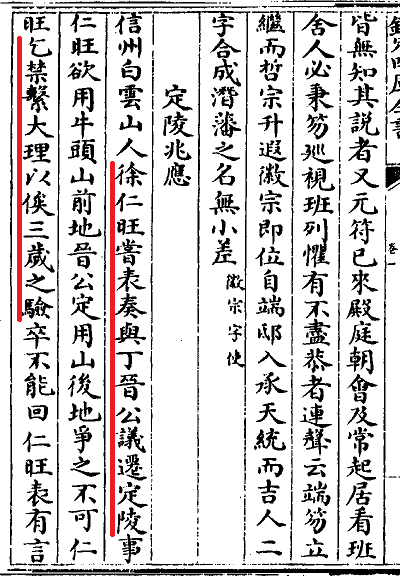 欽定四庫全書
卷一
皆無知其說者又元符已來殿庭朝會及常起居看班
舍人必秉笏廵視班列懼有不盡恭者連聲云端笏立
繼而哲宗升遐徽宗即位自端邸入承天統而吉人二
字合成潛藩之名無小差徽宗字使
定陵兆應
信州白雲山人徐仁旺嘗表奏與丁晉公議遷定陵事
仁旺欲用牛頭山前地晉公定用山後地爭之不可仁
旺乞禁繫大理以俟三歲之驗卒不能回仁旺表有言